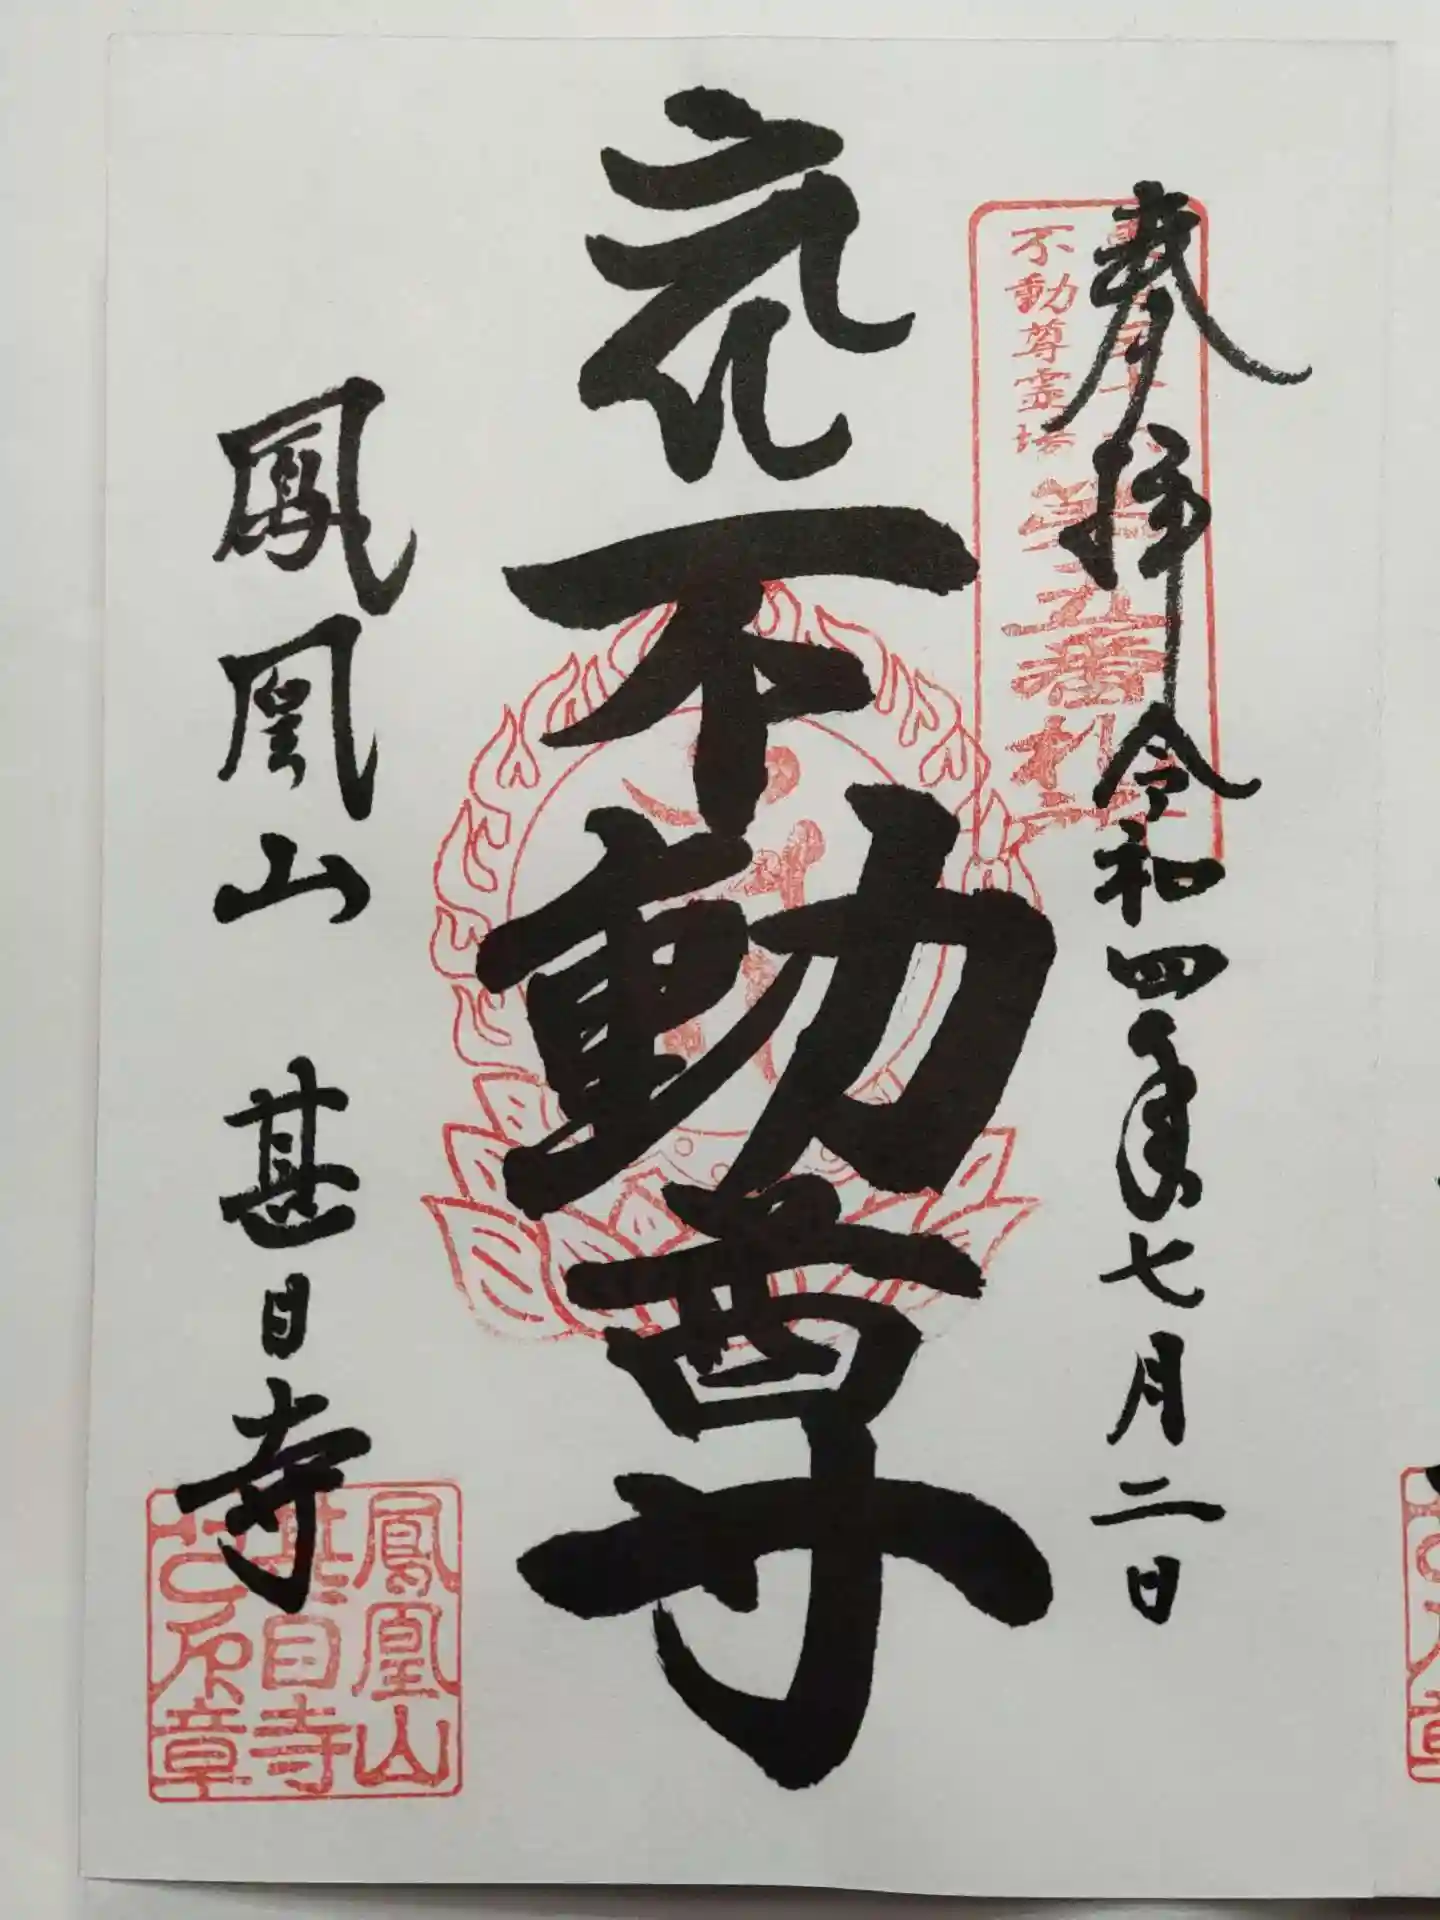 奉拝 令和四年七月二日
不動尊霊場
第五番札所
不動尊
鳳凰山 甚目寺
鳳凰山
甚目寺
之印章